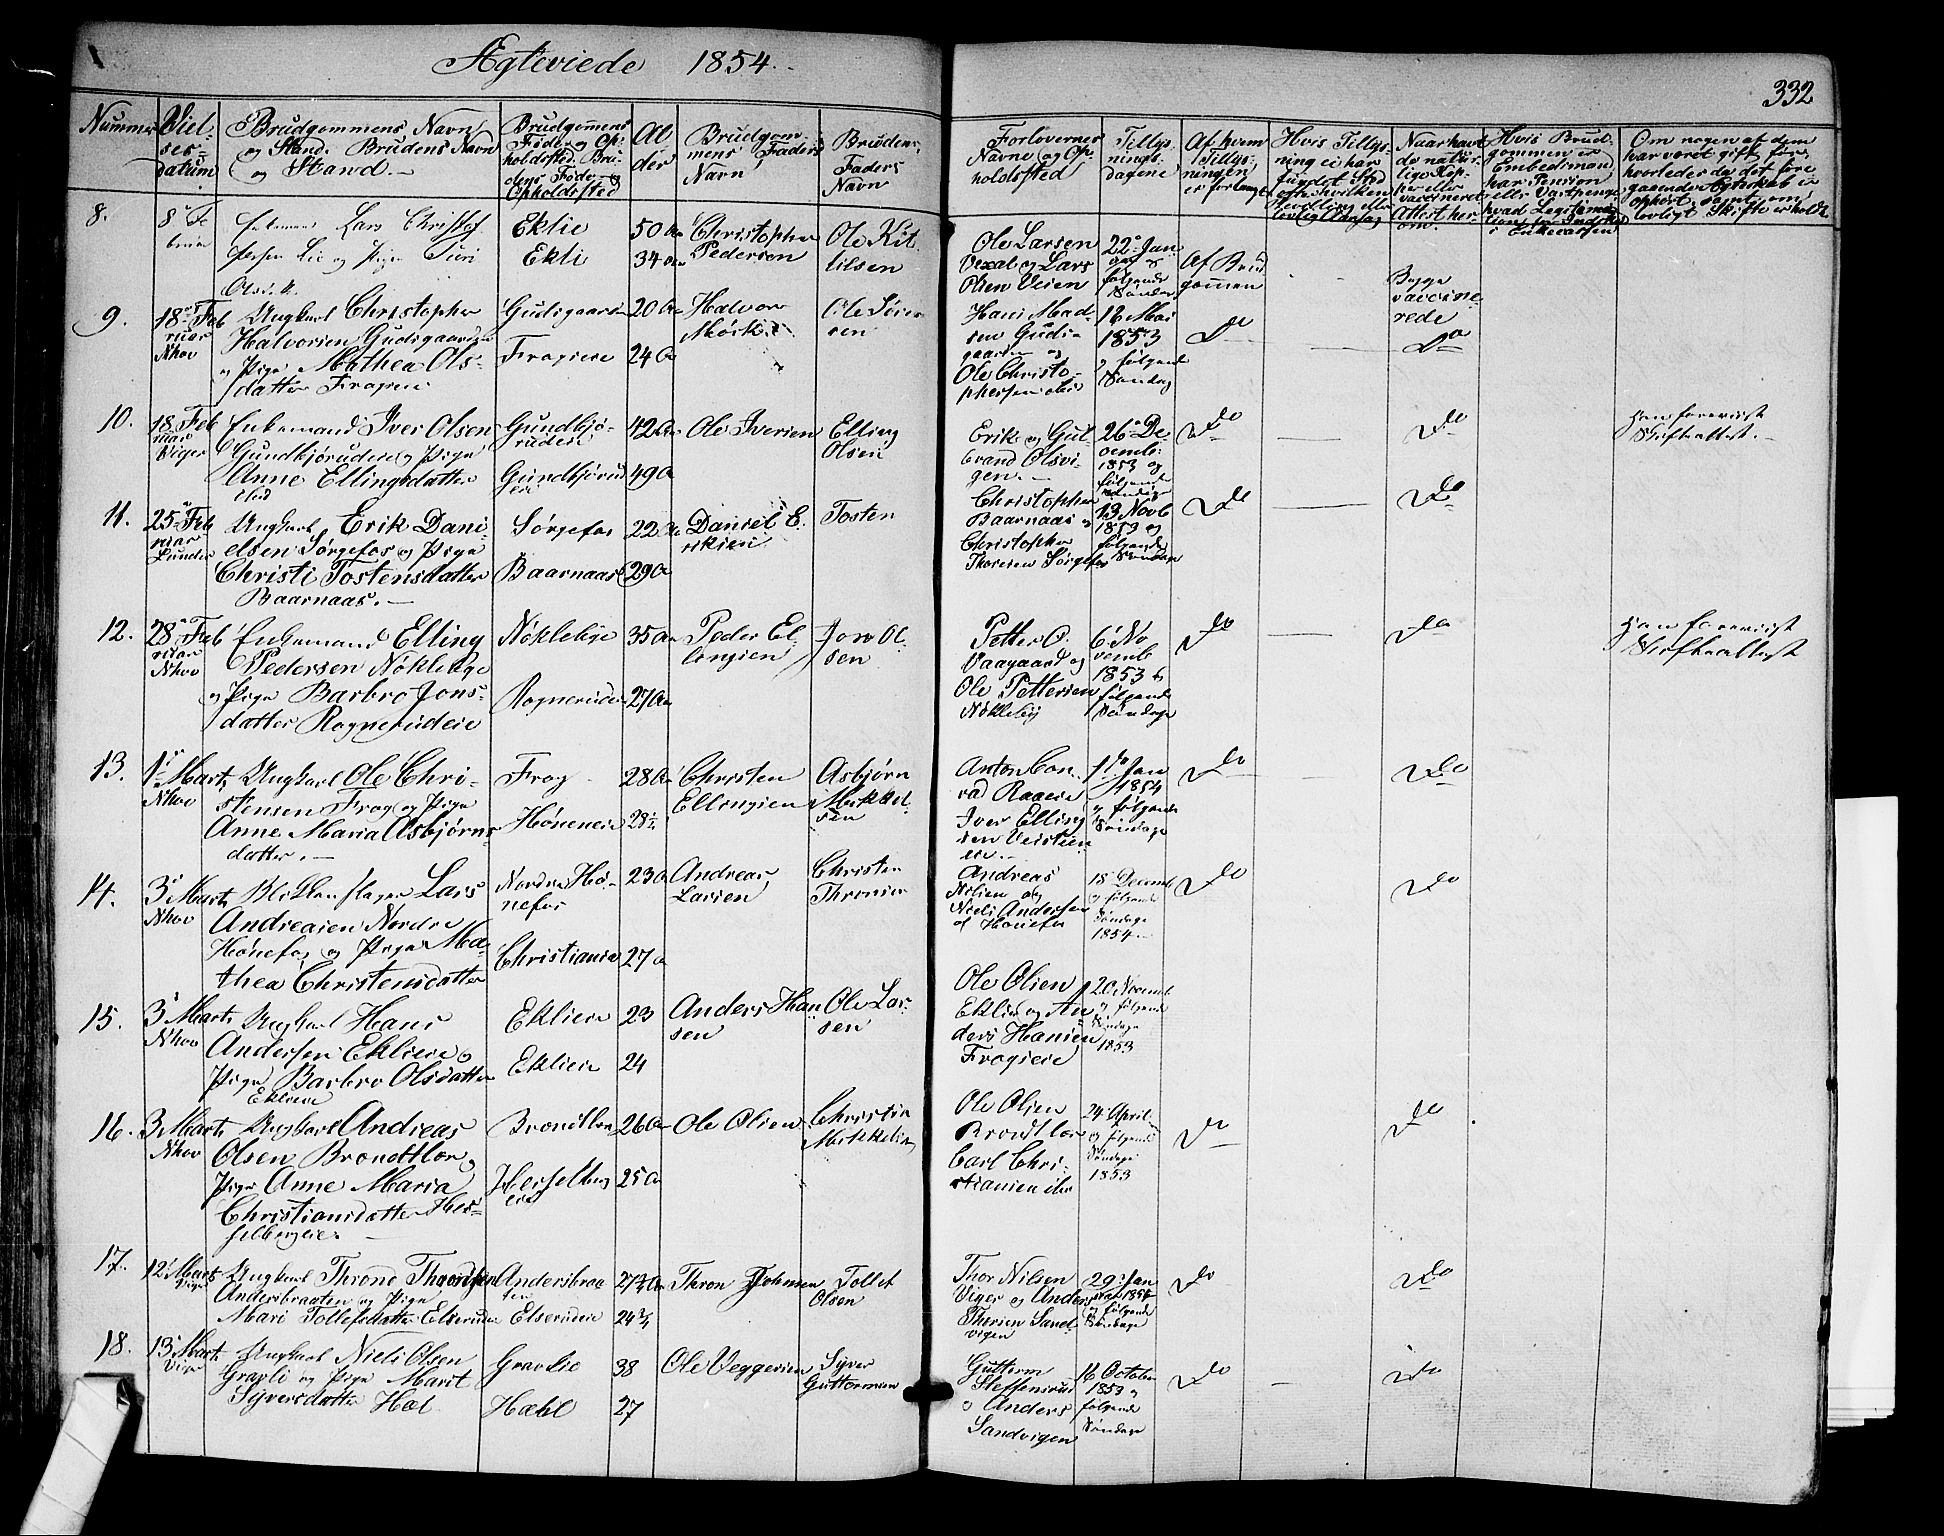 Ægteviede 1854.
332
Nummer
Viel-
ses-
datum
Brudgommens Navn
og Stand. Brudens Navn
og Stand.
Brudgommens
Føde- og Op-
holdssted. Bru-
dens Føde- og
Opholdssted
Al
der
Brudgom-
mens Faders
Navn
Brudens
Faders
Navn
Forlovernes
Navne og Op-
holdssted
Tillys-
nings-
dagene
Af hvem
Tillys-
ningen
er forlangt
Hvis Tillys-
ning ei har
fundet Sted
Bevilling eller
lovlig Ansøg
Naar havt
de natur-
lige Kop-
per eller
vaccineret
Attest her-
om.
Hvis Brud-
gommen er
Embedsmand
har Pension
eller Vartpenge
hvad Legitima-
tion for Indsk
i Enkecassen
Om nogen af dem
har været gift før,
hvorledes da det fore
gaaende Ægteskab er
ophørt, samt om
lovligt Skifte er holdt
8.
8 Fe
bruar
Enkemand Lars Christof
fersen Lie og Pige Siri
Olsd.
Eklie
Ekli
50 Aar
34 Aar
Christopher
Pedersen
Ole Kit
tilsen
Ole Larsen
Vexal og Lars
Olsen Veien
22 Jan
følgende
Søndage
Af Brud
gommen
Begge
vaccine-
rede
9.
18 Feb
ruar
Nhov
Ungkarl Christopher
Halvorsen Gudsgaarden
og Pige Mathea Ols-
datter Frogner
Gudsgaarden
Frogseie
20 Aar
24 A
Halvor
Mørk
Ole Sør
sen
Hans Mad-
sen Guds-
gaarden og
Ole Christo-
phersen ibid
12 Mai
1853
og følgende
Søndag
Do
Do
10.
18 Feb
ruar
Viger
Enkemand Iver Olsen
Gundbjørudeie og Pige
Anne Ellingsdatter
ibid
Gundbjø-
rudeie
Gundbjørud
eie
42 Aar
49 A
Ole Iversen
Elling
Olsen
Erik og Gul-
brand Olsvi-
gen.
26 De-
cemb:
1853 og
følgende
Søndage
Do
Do
Han foreviist
Skifteattest.
11.
25 Feb
ruar
Lunder
Ungkarl Erik Dani-
elsen Sørgefos og Pige
Christi Tostensdatter
Baarnaas.
Sørgefos
Baarnaas
22 Aar
29 A
Daniel E.
riksen
Tosten
Christopher
Baarnaas og
Christopher
Thoresen Sørgefos
13 Novb
1853 og
følgende
Søndage
Do
Do
12.
28 Feb
ruar
Nhov
Enkemand Elling
Pedersen Nøklebye
og Pige Barbro Jons-
datter Rognerudeie
Nøklebye
Rognerudeie
35 Aar
27 Aar
Peder El-
lingsen
Jon Ol-
sen
Petter O.
Vaagaard og
Ole Pettersen
Nøkleby
6 No
vemb
1853 &
følgende
Søndage
Do
Do
Han foreviist
Skifteattest
13.
1 Marts
Nhov
Ungkarl Ole Chri-
stensen Frog og Pige
Anne Maria Asbjørns-
datter.
Frog
Høneneie
28 Aar
28 ½
Christen
Ellingsen
Asbjørn
Mikkel-
sen
Anton Con-
rad Raaeie
Iver Elling
sen
eie.
1 Jan
1854
og følgende
Søndage
Do
Do
14.
3 Marts
Nhov
Blikkenslager Lars
Andreasen Nordre
Hønefos og Pige Ma-
thea Christensdatter
Nordre Hø-
nefos
Christiania
23 A
27 A
Andreas
Larsen
Christen
Thronsen
Andreas
Nilsen og
Niels Andersen
af Hønefos
18 Decemb
og følgende
Søndage
1854.
Do
Do
15.
3 Marts
Nhov
Ungkarl Hans
Andersen Eklieie og
Pige Barbro Olsdatter
Eklieie
Eklieie
Eklieie
23
24
Anders Han
sen
Ole Lar-
sen
Ole Olsen
Eklie og An
ders Hansen
Frogseie
20 Novemb
og følgende
Søndage
1853
16.
3 Marts
Nhov
Ungkarl Andreas
Olsen Brandtlor og
Pige Anne Maria
Christiansdatter Hes-
selbergeie.
Brandtlor
Hesselberg
eie
26 Aar
25 A
Ole Olsen
Christian
Mikkelsen
Ole Olsen
Brandtlor
Carl Chri-
stiansen ibd
24 April
og følgende
Søndage
1853
Do
Do
17.
12 Marts
Viger
Ungkarl Thrond Thronsen
Andersbraaten og Pige
Mari Tollefsdatter Elserudeie
Andersbraa
ten
Elserudeie
27¾ Aar
24¾
Thron Johnsen
Tollef
Olsen
Thor Nilsen
Viger og Anders
Thorsen Sand-
vigen
29 Jan
uar 1854
og følgende
Søndage
Do
Do
18.
13 Marts
Viger
Ungkarl Niels Olsen
Gravli og Pige Marit
Syversdatter Hæl
Gravlie
Hæhl
38
27
Ole Veggersen
Syver
Guttormsen
Guttorm
Steffensrud
og Anders
Sandvigen
16 October
1853 og
følgende
Søndage
Do
Do